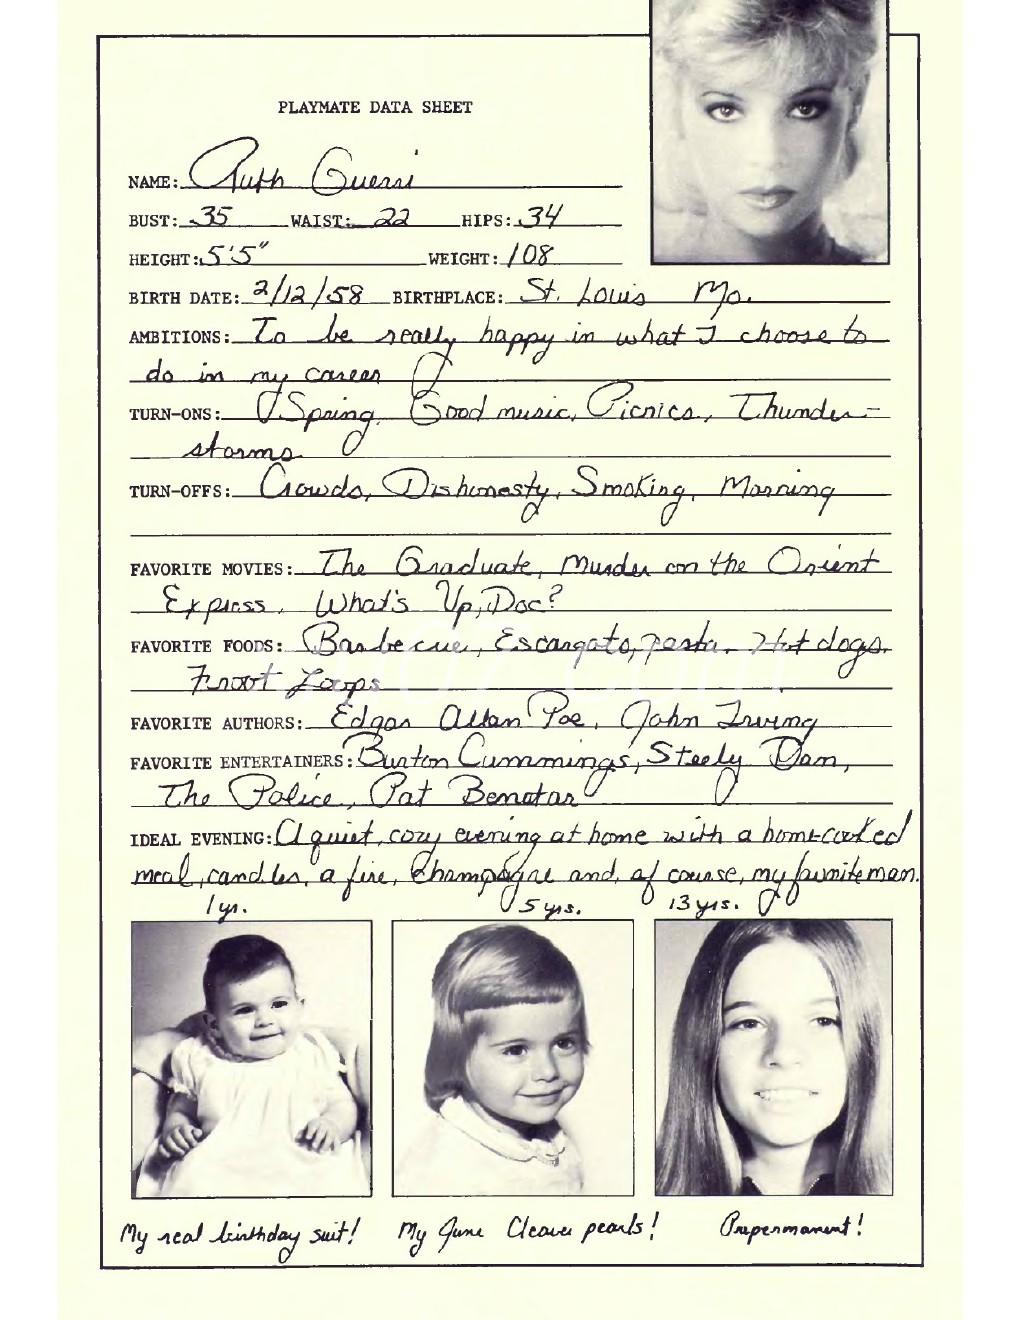 PLAYMATE DATA SHEET
NAME: Ruth Guerri
BUST: 35 WAIST: 22 HIPS: 34
HEIGHT: 5'5" WEIGHT: 108
BIRTH DATE: 2/12/58 BIRTHPLACE: St. Louis Mo.
AMBITIONS: To be really happy in what I choose to
do in my career
TURN-ONS: Spring, Good music, Picnics, Thunder-
storms
TURN-OFFS: Crowds, Dishonesty, Smoking, Morning
FAVORITE MOVIES: The Graduate, Murder on the Orient
Express, What's Up, Doc?
FAVORITE FOODS: Barbecue, Escargots, pasta, Hot dogs,
Froot Loops
FAVORITE AUTHORS: Edgar Allan Poe, John Irving
FAVORITE ENTERTAINERS: Burton Cummings, Steely Dan,
The Police, Pat Benatar
IDEAL EVENING: A quiet, cozy evening at home with a home-cooked
meal, candles, a fire, Champagne and, of course, my favorite man.
1 yr. 5 yrs. 13 yrs.
My real birthday suit! My June Cleaver pearls! Prepermanent!